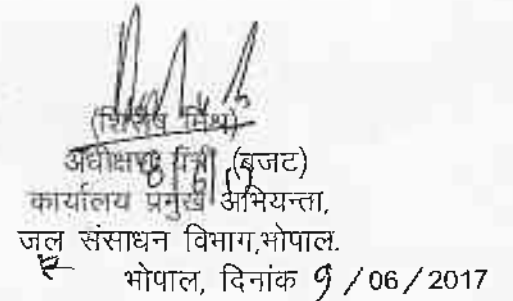 (शिरीष मिश्र)
अधीक्षण यंत्री (बजट)
कार्यालय प्रमुख अभियन्ता,
जल संसाधन विभाग,भोपाल.
भोपाल, दिनांक 9 / 06 / 2017